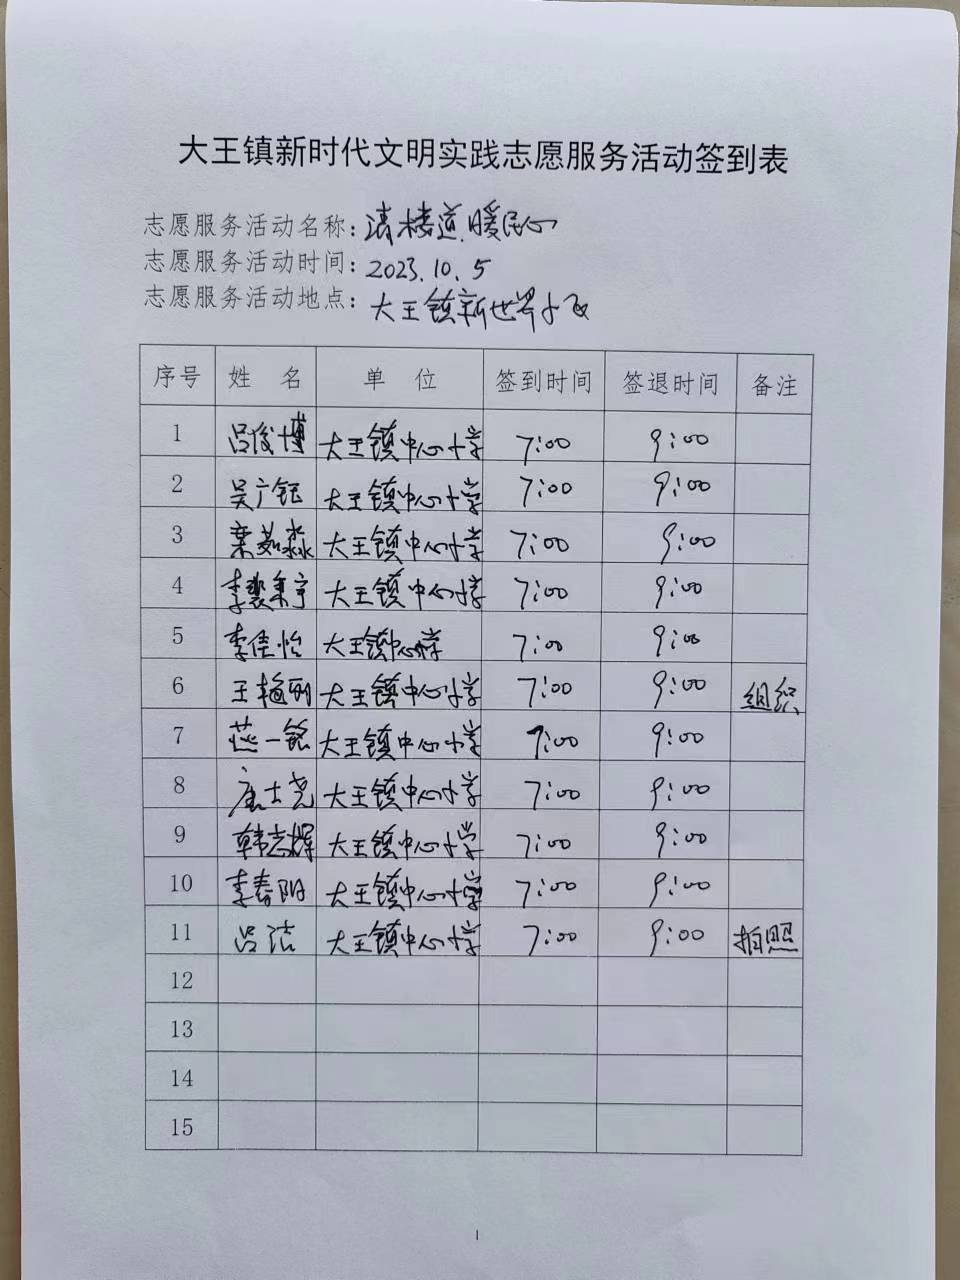 大王镇新时代文明实践志愿服务活动签到表
志愿服务活动名称：清楼道，暖民心
志愿服务活动时间：2023.10.5
志愿服务活动地点：大王镇新世界小区
序号 姓 名 单 位 签到时间 签退时间 备注
1 吕俊博 大王镇中心小学 7:00 9:00
2 吴广钰 大王镇中心小学 7:00 9:00
3 茹淼 大王镇中心小学 7:00 9:00
4 李秉宇 大王镇中心小学 7:00 9:00
5 李佳怡 大王镇中心小学 7:00 9:00
6 王艳丽 大王镇中心小学 7:00 9:00 组织
7 燕一铭 大王镇中心小学 7:00 9:00
8 士尧 大王镇中心小学 7:00 9:00
9 韩志辉 大王镇中心小学 7:00 9:00
10 李春阳 大王镇中心小学 7:00 9:00
11 吕洁 大王镇中心小学 7:00 9:00 拍照
12
13
14
15
1